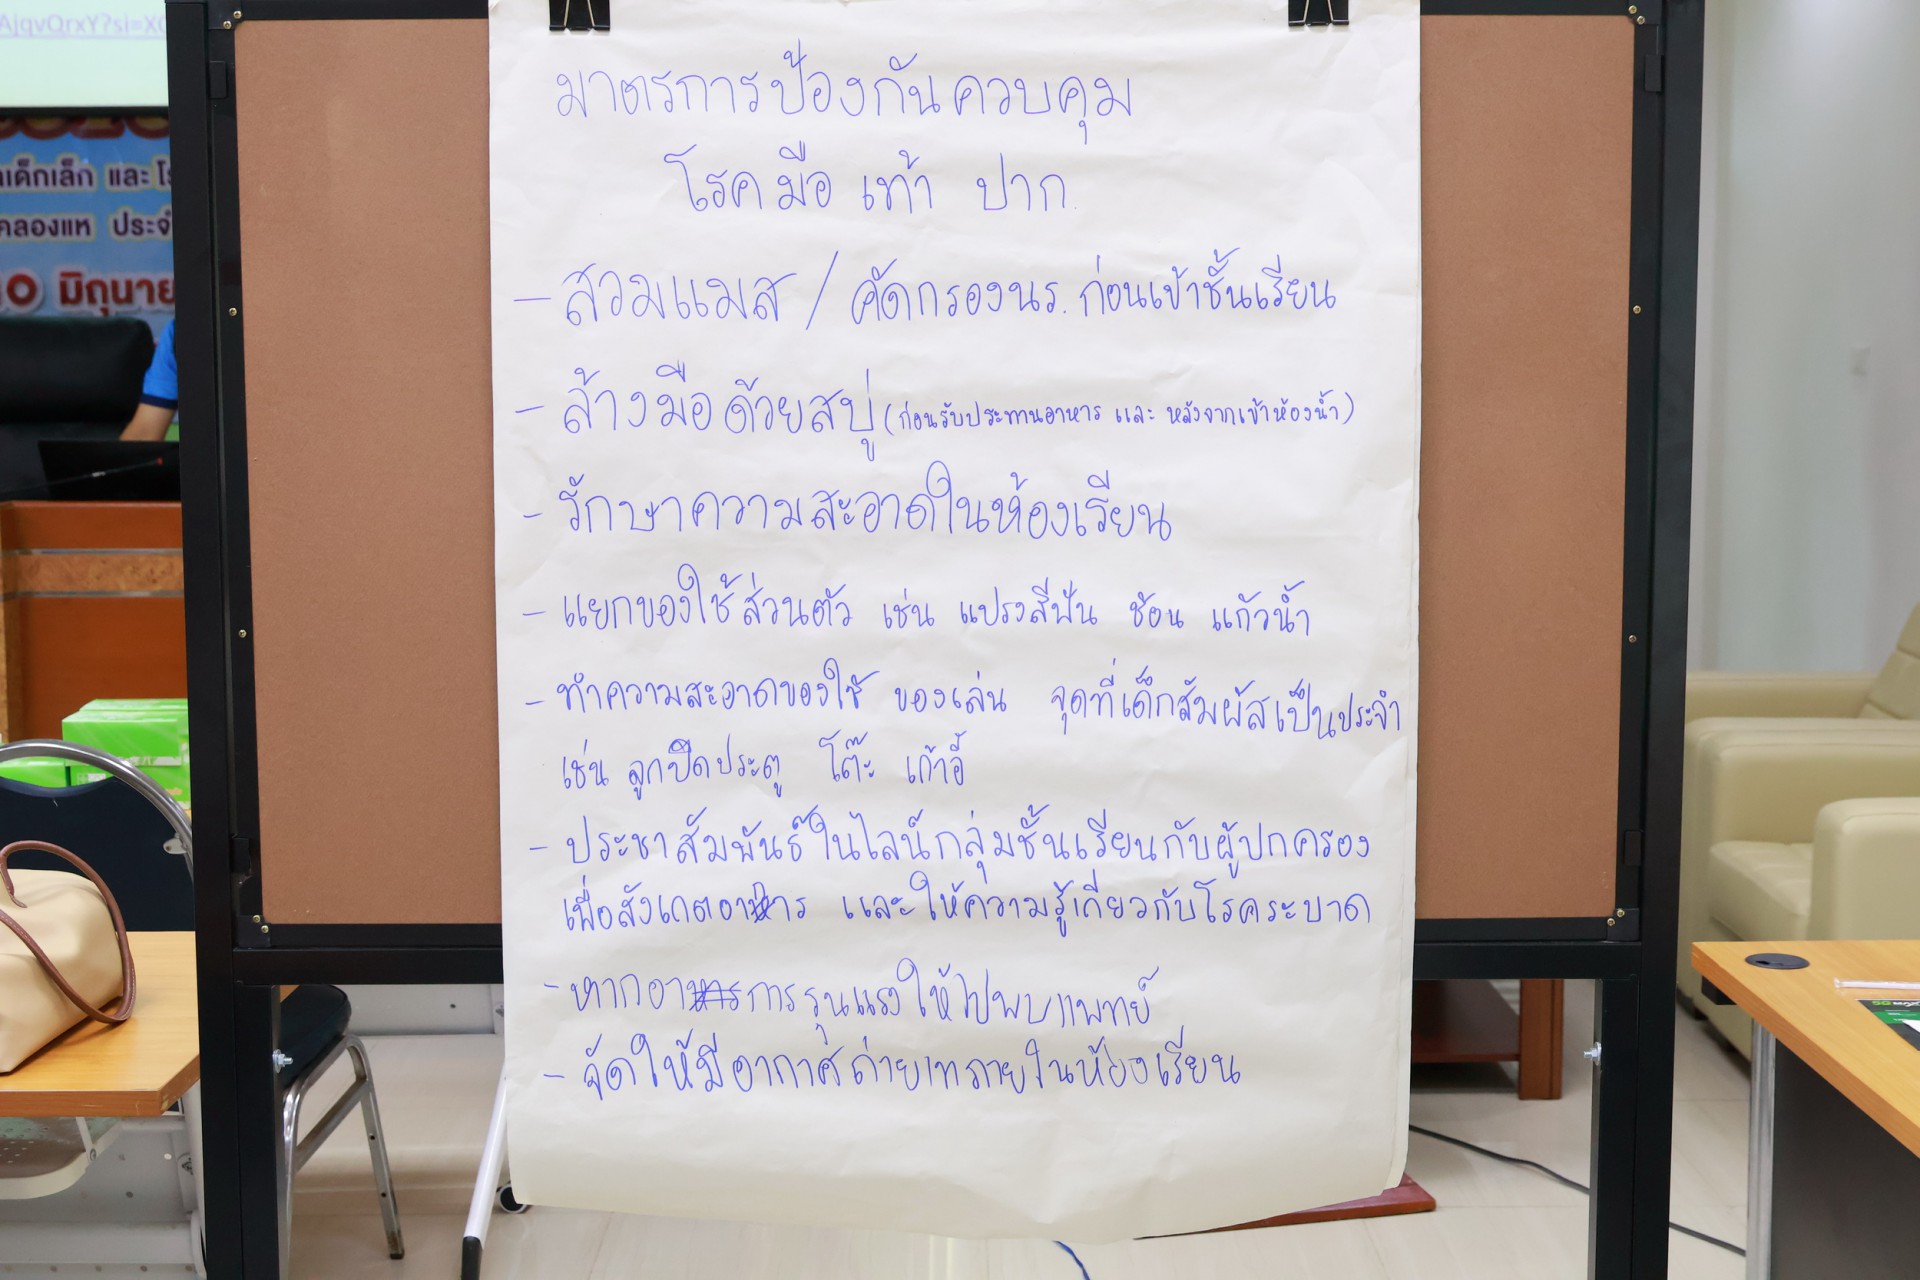 AjqvQrxY?si=X
เด็กเล็ก และโร
คลองแห ประจำ
๐ มิถุนาย
มาตรการป้องกันควบคุม
โรคมือ เท้า ปาก
- สวมแมส / คัดกรองนร. ก่อนเข้าชั้นเรียน
- ล้างมือด้วยสบู่ (ก่อนรับประทานอาหาร และ หลังจากเข้าห้องน้ำ)
- รักษาความสะอาดในห้องเรียน
- แยกของใช้ส่วนตัว เช่น แปรงสีฟัน ช้อน แก้วน้ำ
- ทำความสะอาดของใช้ ของเล่น จุดที่เด็กสัมผัสเป็นประจำ
เช่น ลูกบิดประตู โต๊ะ เก้าอี้
- ประชาสัมพันธ์ในไลน์กลุ่มชั้นเรียนกับผู้ปกครอง
เพื่อสังเกตอาการ และให้ความรู้เกี่ยวกับโรคระบาด
- หากอาการรุนแรงให้ไปพบแพทย์
- จัดให้มีอากาศถ่ายเทภายในห้องเรียน